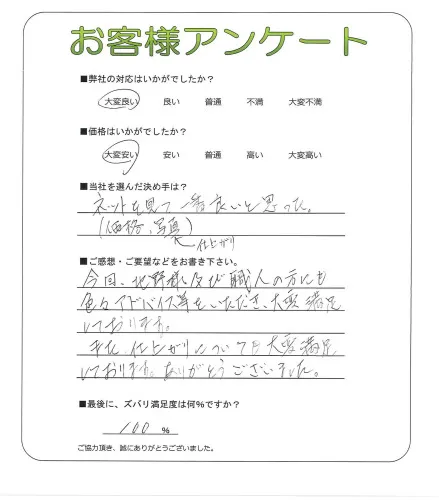 お客様アンケート
■弊社の対応はいかがでしたか?
大変良い 良い 普通 不満 大変不満
■価格はいかがでしたか?
大変安い 安い 普通 高い 大変高い
■当社を選んだ決め手は?
ネットを見て一番良いと思った。
(価格、写真)
仕上がり
■ご感想・ご要望などをお書き下さい。
今回、北野様及び職人の方にも
色々アドバイス等をいただき、大変満足
しております。
また、仕上がりについても大変満足
しております。ありがとうございました。
■最後に、ズバリ満足度は何%ですか?
100 %
ご協力頂き、誠にありがとうございました。